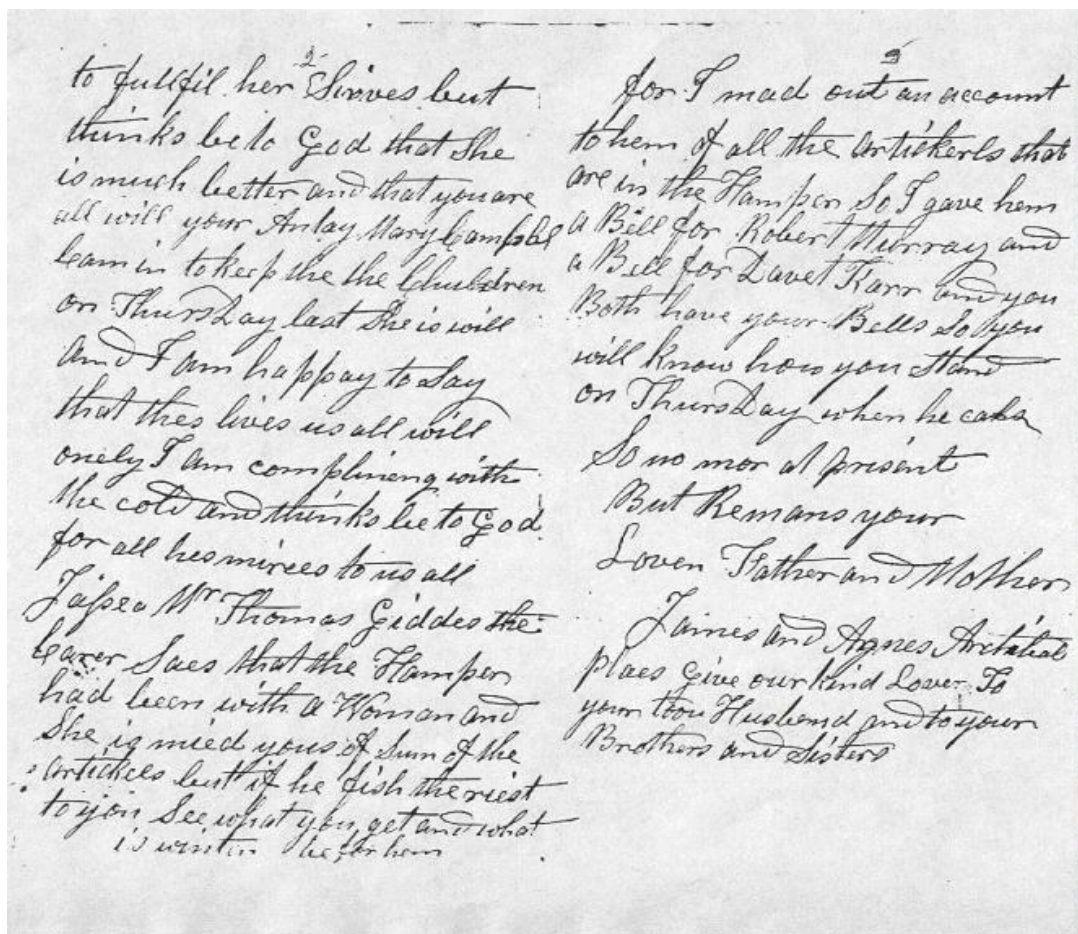 2
to fullfil her Sirves but
thinks be to God that She
is much better and that you are
all will your Antay Mary Campbel
Cam in to keep the the Children
on ThursDay last She is will
and I am happay to Say
that thes lives us all will
onely I am complineng with
the cold and thinks be to God
for all hes mirces to us all
Mr Thomas Giddes the
Carer Saes that the Hamper
had been with a Woman and
She is mied yous of Sum of the
artickels but if he fish the riest
to you See what you get and what
is wintin be for hem
3
for I mad out an account
to hem of all the artickerls that
are in the Hamper So I gave hem
a Bell for Robert Murray and
a Bell for Davet Karr and you
Both have your Bells So you
will know how you Stand
on ThursDay when he cals
So no mor at prisint
But Remans your
Loven Father and Mother
James and Agnes
plaes Give our kind Lover To
your Husbend and to your
Brothers and Sisters